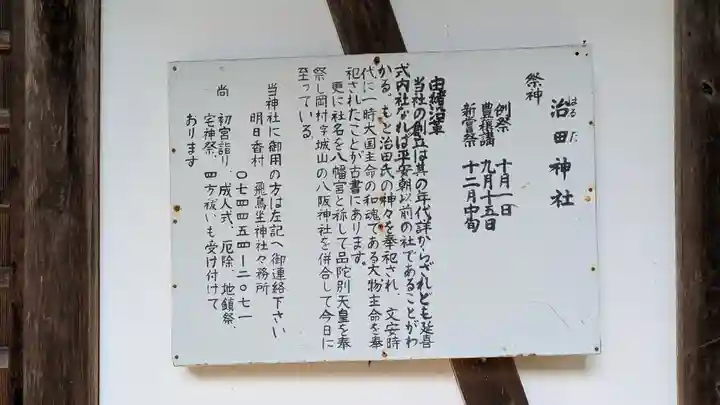 治田神社
はるた
祭神
例祭 十月一日
豊穣講 九月十五日
新嘗祭 十二月中旬
由緒沿革
当社の創立は其の年代詳からざれども延喜
式内社なれば平安朝以前の社であることがわ
かる。もと治田氏の神々を奉祀され、文安時
代に一時大国主命の和魂である大物主命を奉
祀されたことが古書にあります。
更に社名を八幡宮と称して品陀別天皇を奉
祭し岡村字城山の八阪神社を併合して今日に
至っている
当神社に御用の方は左記へ御連絡下さい
明日香村 飛鳥坐神社々務所
〇七四四五四ー二〇七一
尚 初宮詣り、成人式、厄除、地鎮祭、
宅神祭、四方祓いも受け付けて
おります